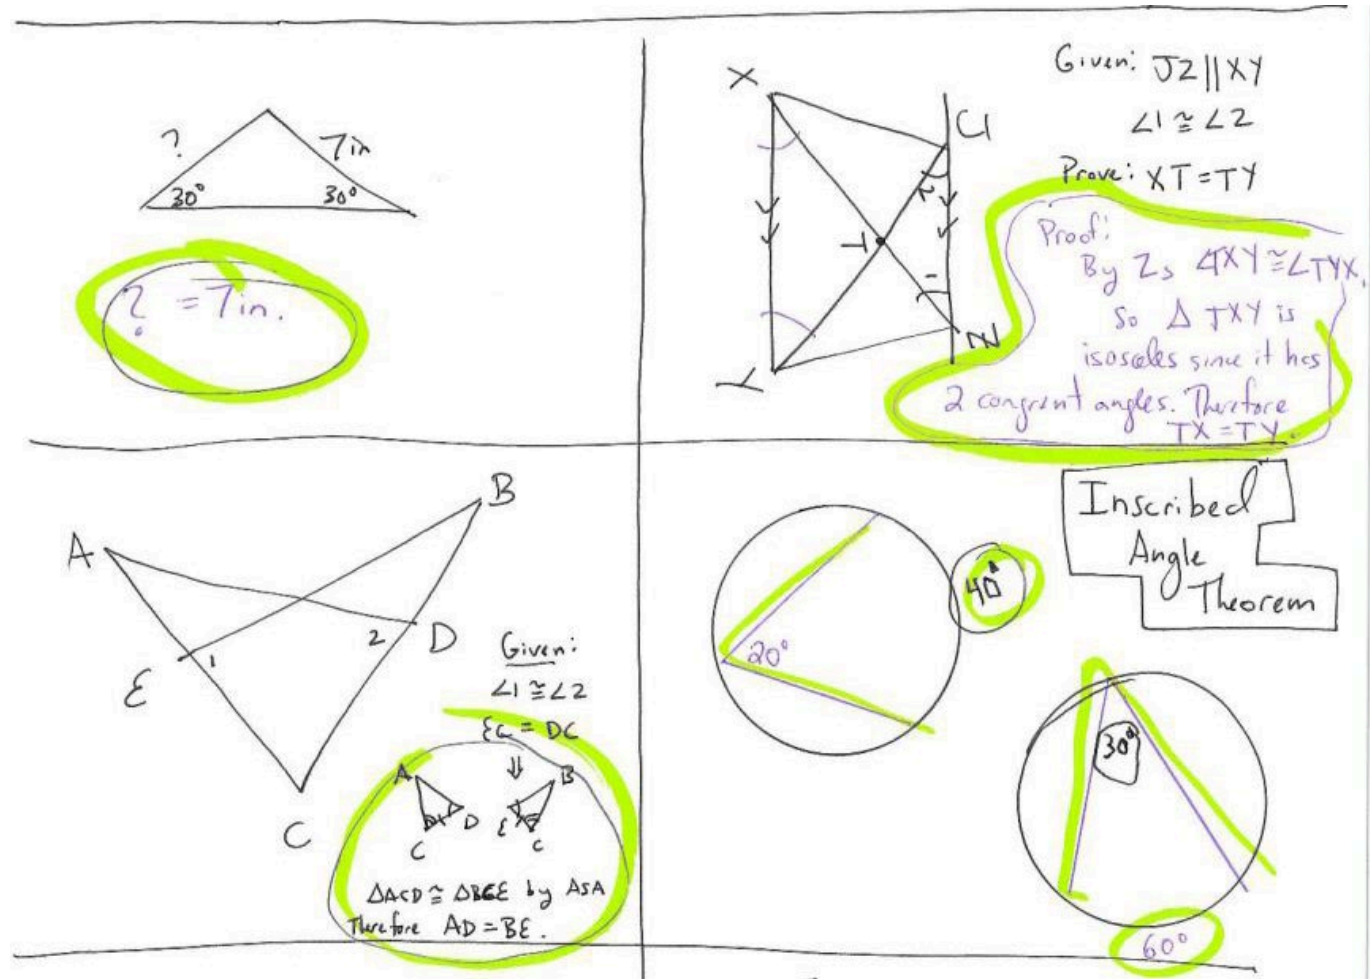 ?
7in
30°
30°
? = 7in.
X
Y
T
Z
1
2
Given: JZ || XY
∠1 ≅ ∠2
Prove: XT = TY
Proof:
By Zs ∠TXY ≅ ∠TYX,
so Δ TXY is
isosceles since it has
2 congrunt angles. Therefore
TX = TY.
A
B
E
1
2
D
C
Given:
∠1 ≅ ∠2
EC = DC
⇓
A
D
C
B
E
C
ΔACD ≅ ΔBCE by ASA
Therefore AD = BE.
Inscribed
Angle
Theorem
20°
40°
30°
60°